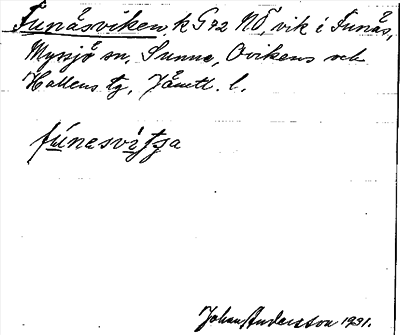 Funäsviken, k G 72 NÖ, vik i Funäs,
Myssjö sn, Sunne, Ovikens och
Hallens tg, Jämtl. l.
fúnesvi̯tʃa
Johan Andersson 1931.